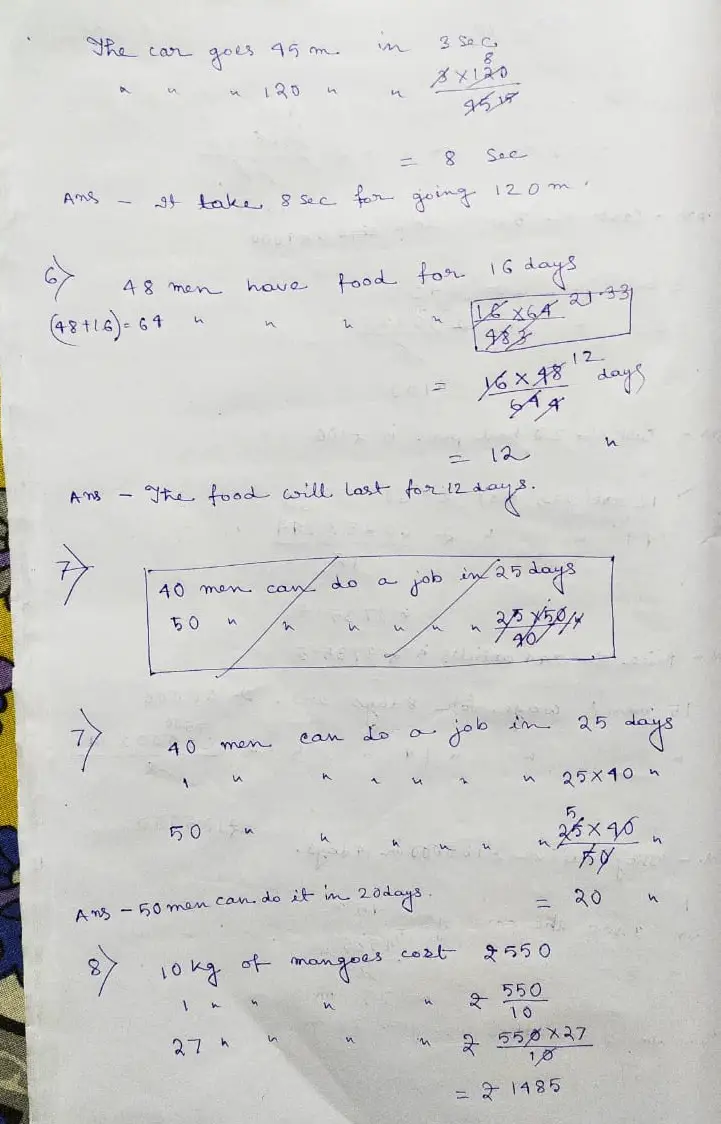 The car goes 45 m in 3 sec
" " " 120 " " 3 × 120 8 / 45 15
= 8 Sec
Ans - It take 8 sec for going 120 m.
6) 48 men have food for 16 days
(48+16) = 64 " " " " 16 × 64 21.33 / 48 3
= 16 × 48 12 / 64 4 days
= 12 "
Ans - The food will last for 12 days.
7) 40 men can do a job in 25 days
50 " " " " " " 25 × 50 / 40
7) 40 men can do a job in 25 days
1 " " " " " " 25 × 40 "
50 " " " " " " 5 25 × 40 / 50 "
Ans - 50 men can do it in 20 days. = 20 "
8) 10 kg of mangoes cost ₹ 550
1 " " " " ₹ 550 / 10
27 " " " " ₹ 550 × 27 / 10
= ₹ 1485